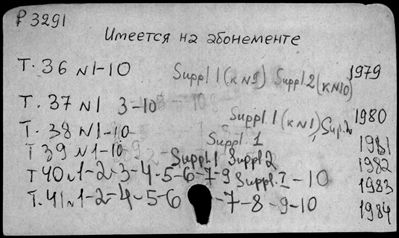 Р 3291
Имеется на абонементе
Т. 36 N1-10 Suppl 1 (к N9) Suppl 2 (к N10) 1979
Т. 37 N1 3-10
Т. 38 N1-10 Suppl 1 (к N1), Sup. 2 1980
Т 39 N1-10 Suppl 1 1981
Suppl.1 Suppl 2 1982
Т 40 N1-2-3-4-5-6-7-9 Suppl. I - 10 1983
Т. 41 N1-2-4-5-6 -7-8-9-10 1984